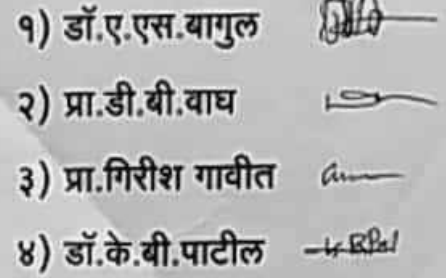 १) डॉ.ए.एस.बागुल
२) प्रा.डी.बी.वाघ
३) प्रा.गिरीश गावीत
४) डॉ.के.बी.पाटील